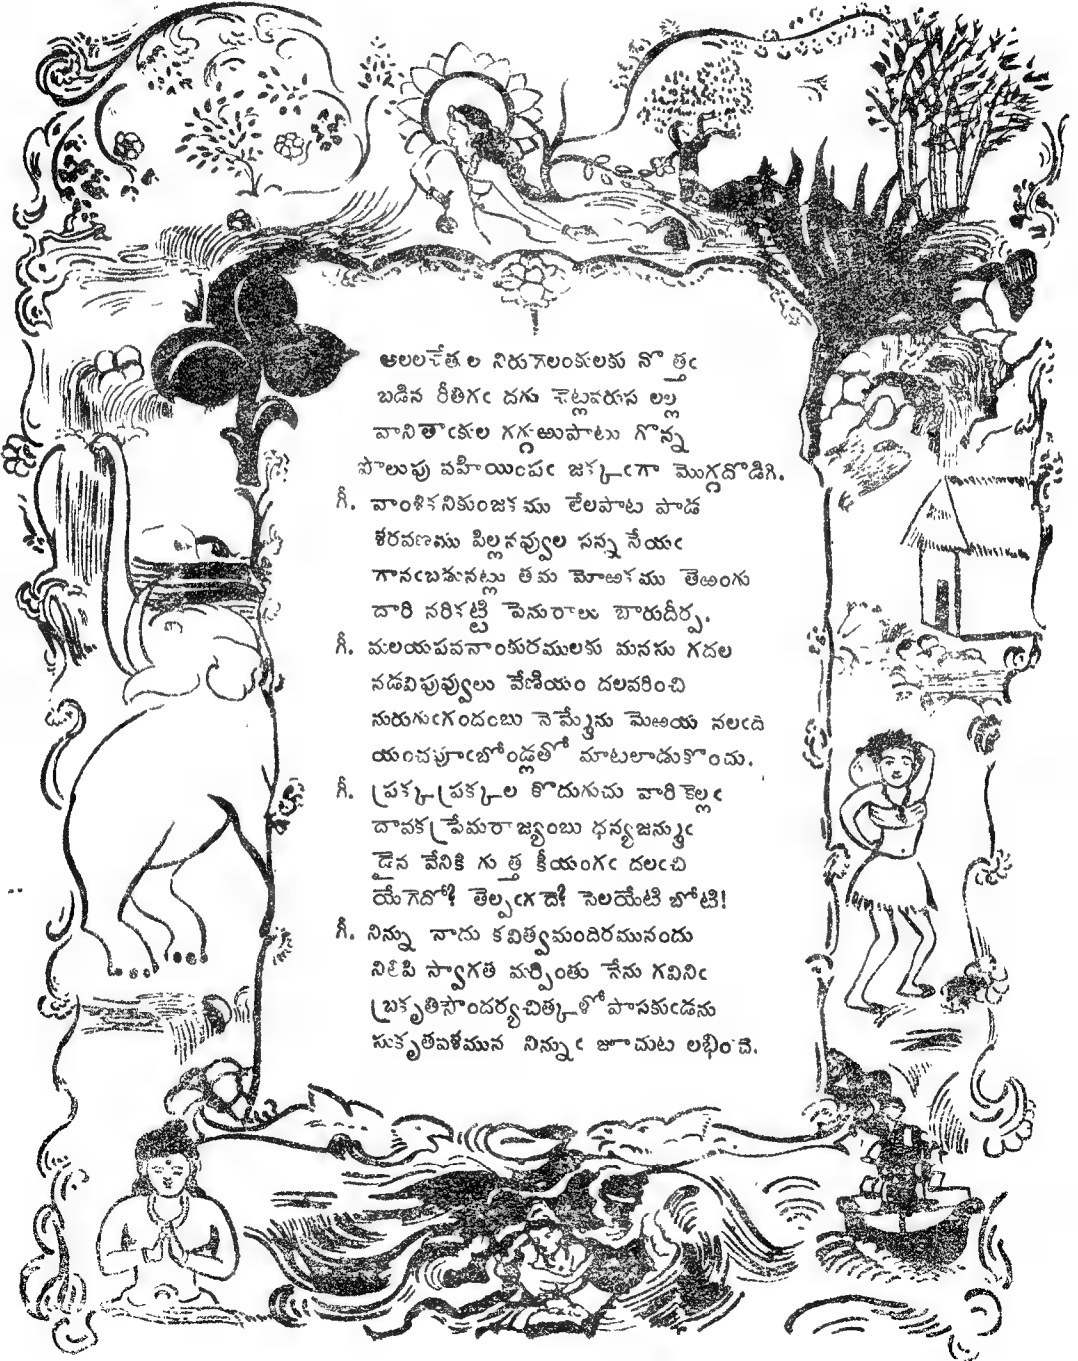 అలలచేతల నిరుగెలంకులకు నొత్తఁ
బడిన రీతిగఁ దగు చెట్లవరుస లల్ల
వాని తాఁకుల గగ్గఱుపాటు గొన్న
పొలుపు సహియింపఁ జక్కఁగా మొగ్గదొడిగి.
గీ. వాంశికనికుంజకము లేలపాట పాడ
శరవణము పిల్లనవ్వుల సన్న సేయఁ
గానఁబడునట్లు తమ మోఱకము తెఱంగు
దారి నరికట్టి పెనురాలు బారుదీర్ప.
గీ. మలయపవనాంకురములకు మనసు గదల
నడవిపువ్వులు వేణియం దలవరించి
నురుగుఁగందంబు నెమ్మేను మెఱయ నలఁది
యంచపూఁబోండ్లతో మాటలాడుకొంచు.
గీ. ప్రక్కప్రక్కల కొదుగుచు వారి కెల్లఁ
దావకప్రేమరాజ్యంబు ధన్యజన్ముఁ
డైన వేనికి గుత్త కీయంగఁ దలఁచి
యేగెదో? తెల్పఁగదె? సెలయేటి బోటి!
గీ. నిన్ను నాదు కవిత్వమందిరమునందు
నిలిపి స్వాగత మర్పింతు నేను గవినిఁ
బ్రకృతిసౌందర్యచిత్కళోపాసకుఁడను
సుకృతవశమున నిన్నుఁ జూచుట లభించె.